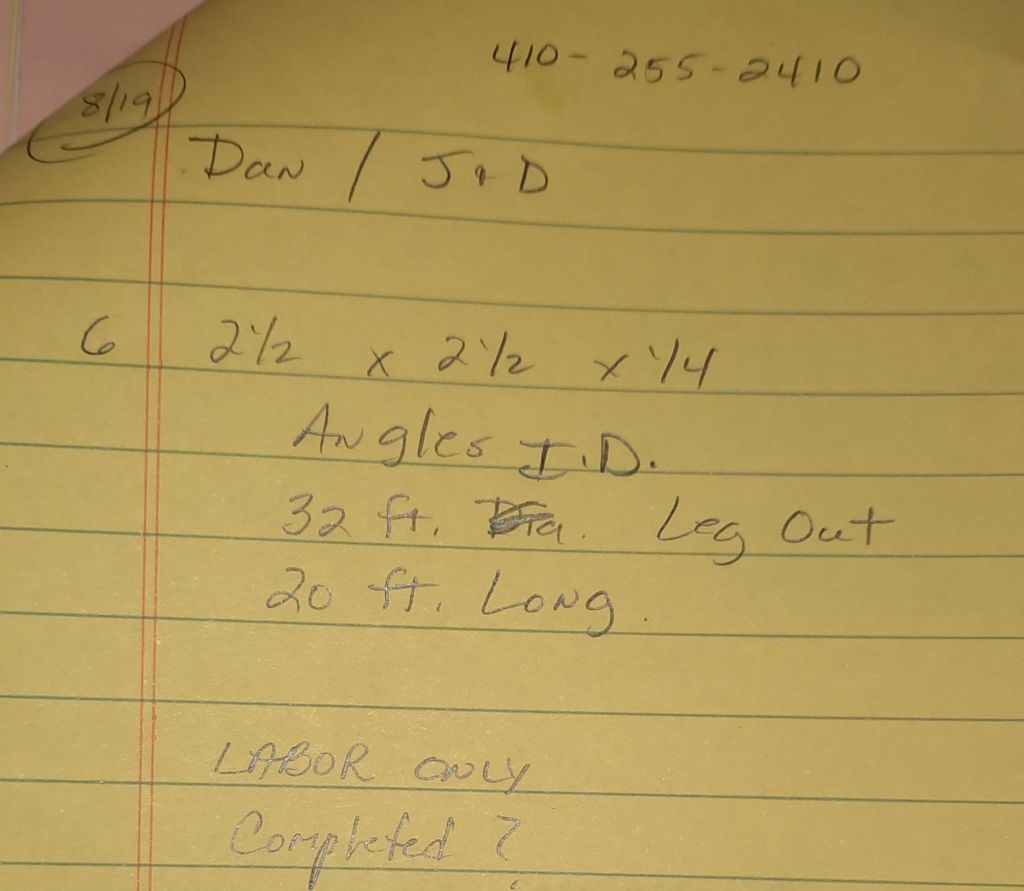 410-255-2410
8/19
Dan / J & D
6 2 1/2 x 2 1/2 x 1/4
Angles I.D.
32 ft. Leg Out
20 ft. Long.
LABOR ONLY
Completed ?